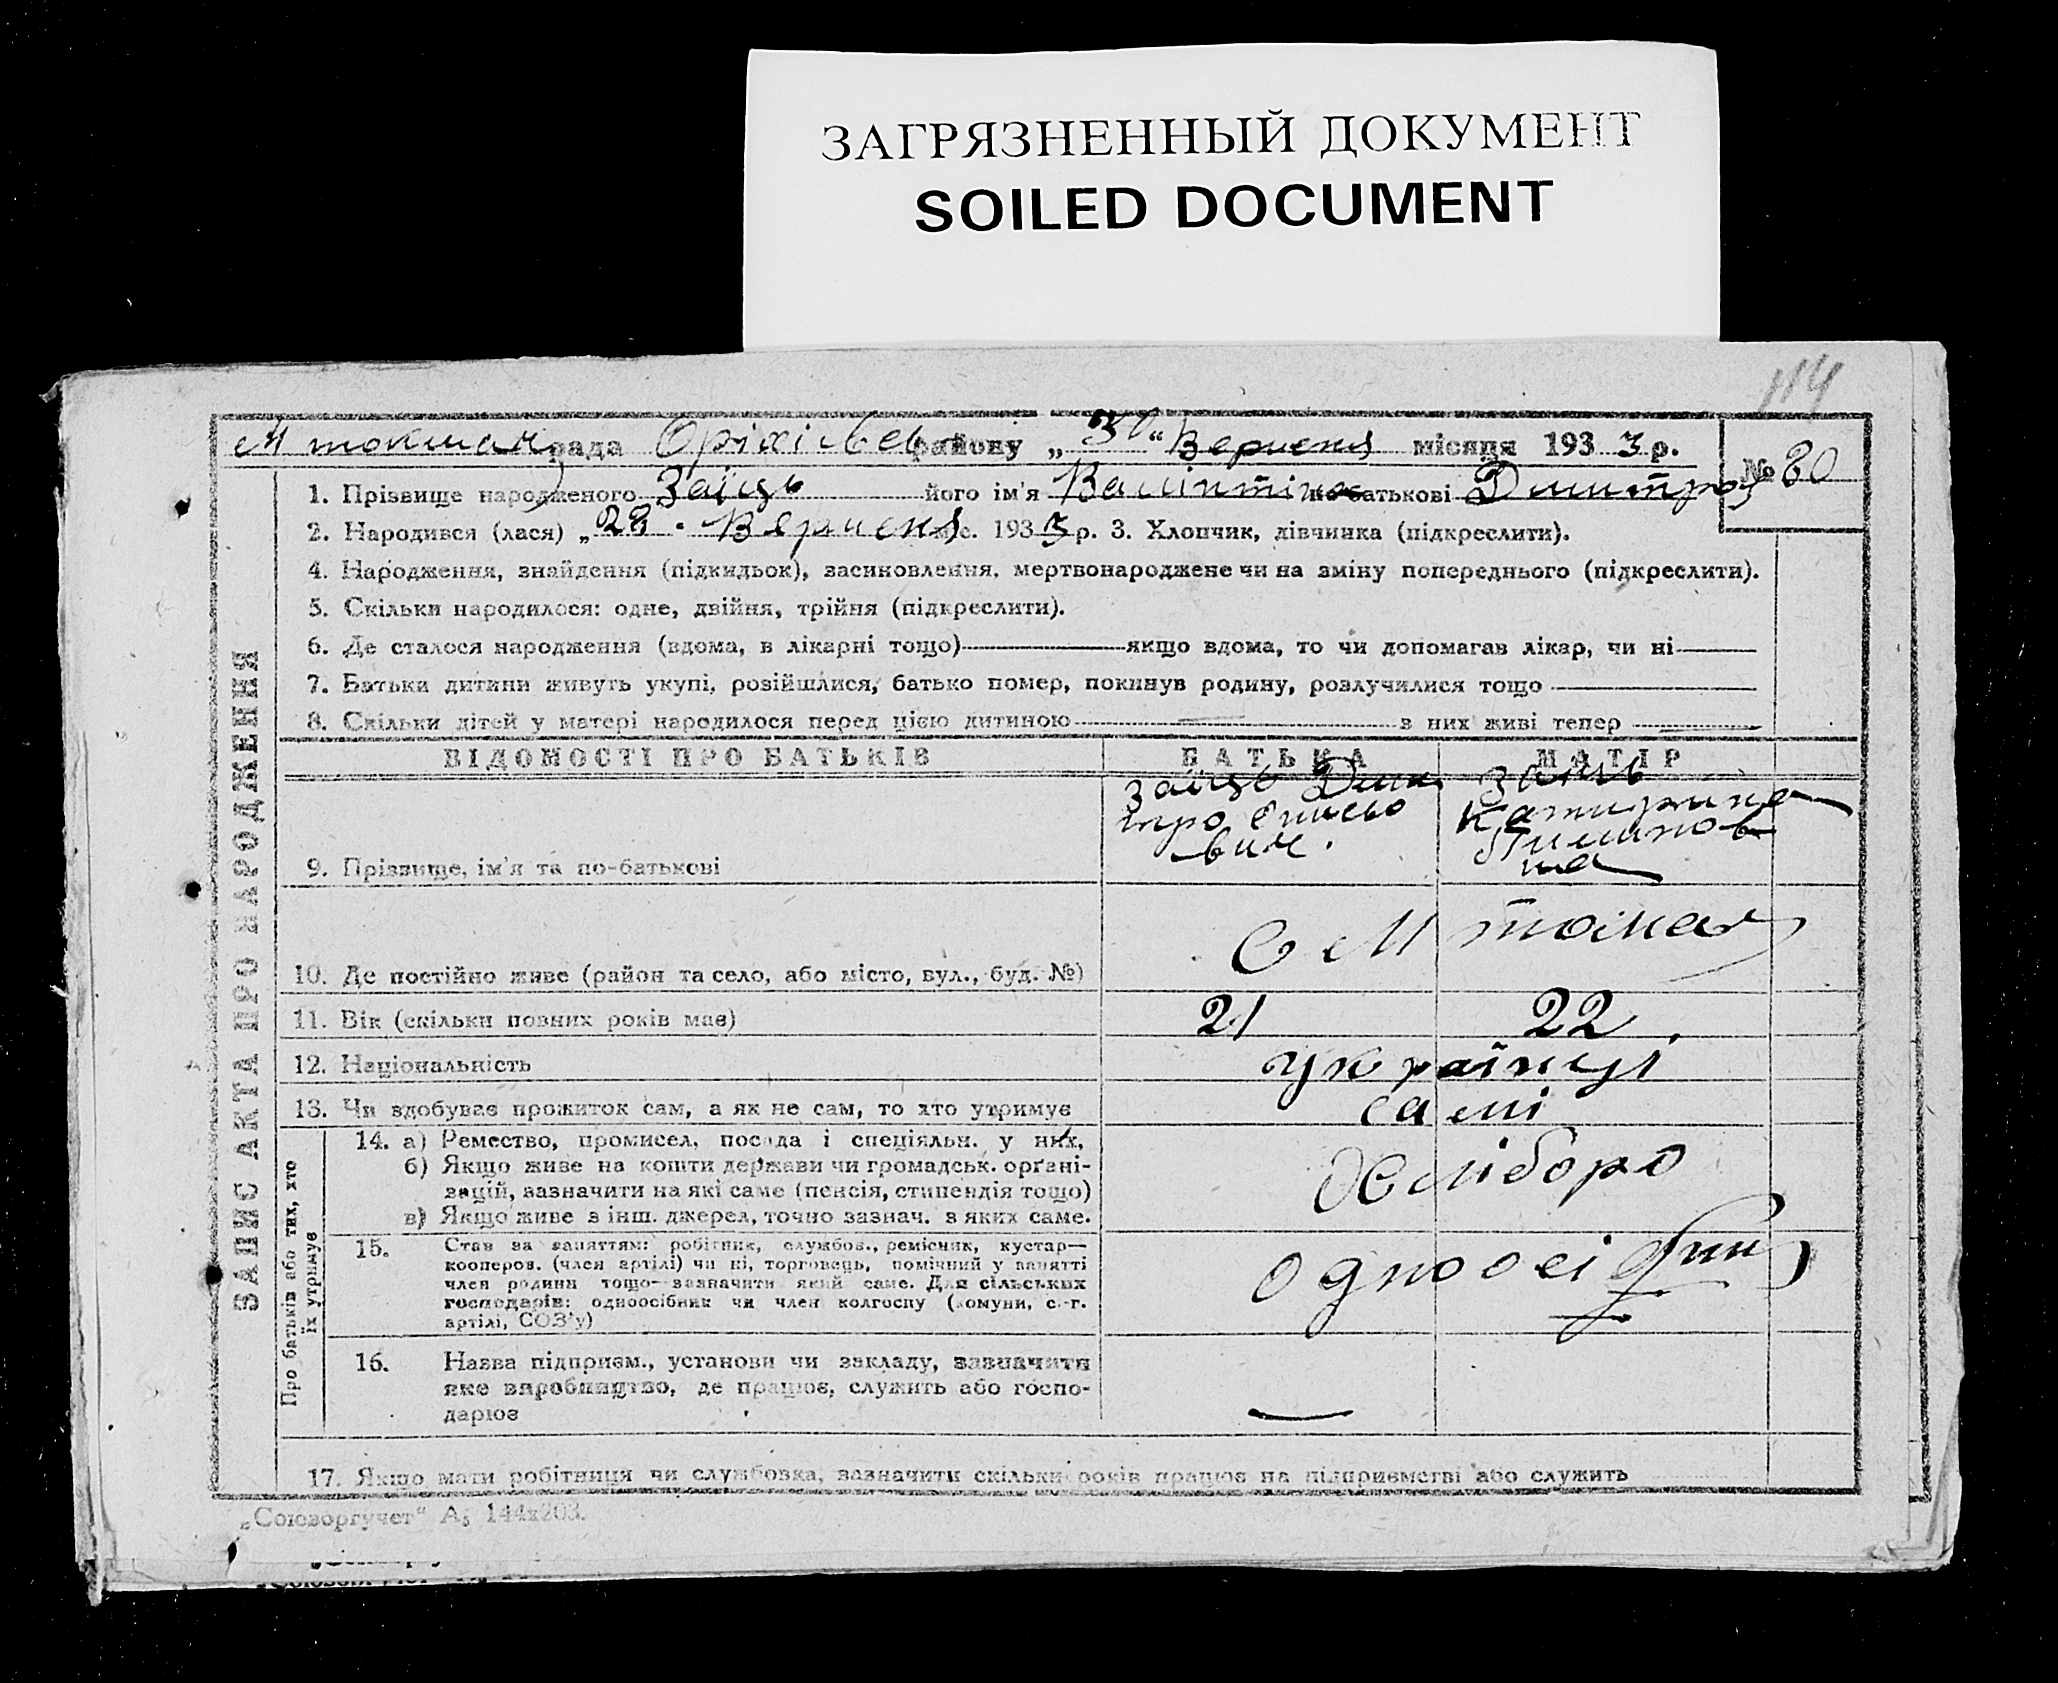 ЗАГРЯЗНЕННЫЙ ДОКУМЕНТ
SOILED DOCUMENT
114
М токмач рада Оріхівсь району „30“ Вересня місяця 1933 р.
№ 80
1. Прізвище народженого Заїць його ім'я Валінтіна по батькові Дмитров
2. Народився (лася) „28 Вересня міс. 1933 р. 3. Хлопчик, дівчинка (підкреслити).
4. Народження, знайдення (підкидьок), засиновлення, мертвонароджене чи на зміну попереднього (підкреслити).
5. Скільки народилося: одне, двійня, трійня (підкреслити).
6. Де сталося народження (вдома, в лікарні тощо) якщо вдома, то чи допомагав лікар, чи ні
7. Батьки дитини живуть укупі, розійшлися, батько помер, покинув родину, розлучилися тощо
8. Скільки дітей у матері народилося перед цією дитиною з них живі тепер
ЗАПИС АКТА ПРО НАРОДЖЕННЯ
ВІДОМОСТІ ПРО БАТЬКІВ БАТЬКА МАТІР
9. Прізвище, ім'я та по-батькові
Заїць Дми
тро
вич.
Заїць
Катирина
Пилипов
на
10. Де постійно живе (район та село, або місто, вул., буд. №)
С М токмач
11. Вік (скільки повних років має) 21 22
12. Національність українці
13. Чи здобуває прожиток сам, а як не сам, то хто утримує самі
Про батьків або тих, хто
їх утримує
14. а) Ремество, промисел, посада і спеціяльн. у них,
б) Якщо живе на кошти держави чи громадськ. орґані-
зацій, зазначити на які саме (пенсія, стипендія тощо)
в) Якщо живе з інш. джерел, точно зазнач. з яких саме.
Хліборо
15. Став за заняттям: робітник, службов., ремісник, кустар—
кооперов. (член артілі) чи ні, торговець, помічний у занятті
член родини тощо—зазначити який саме. Для сільських
господарів: одноосібник чи член колгоспу (комуни, с.-г.
артілі, СОЗ'у)
одноосібник
16. Назва підприєм., установи чи закладу, зазначити
яке виробництво, де працює, служить або госпо-
дарює
17. Якщо мати робітниця чи службовка, зазначити скільки років працює на підприємстві або служить
„Союзоргучет“ А₅ 144x203.